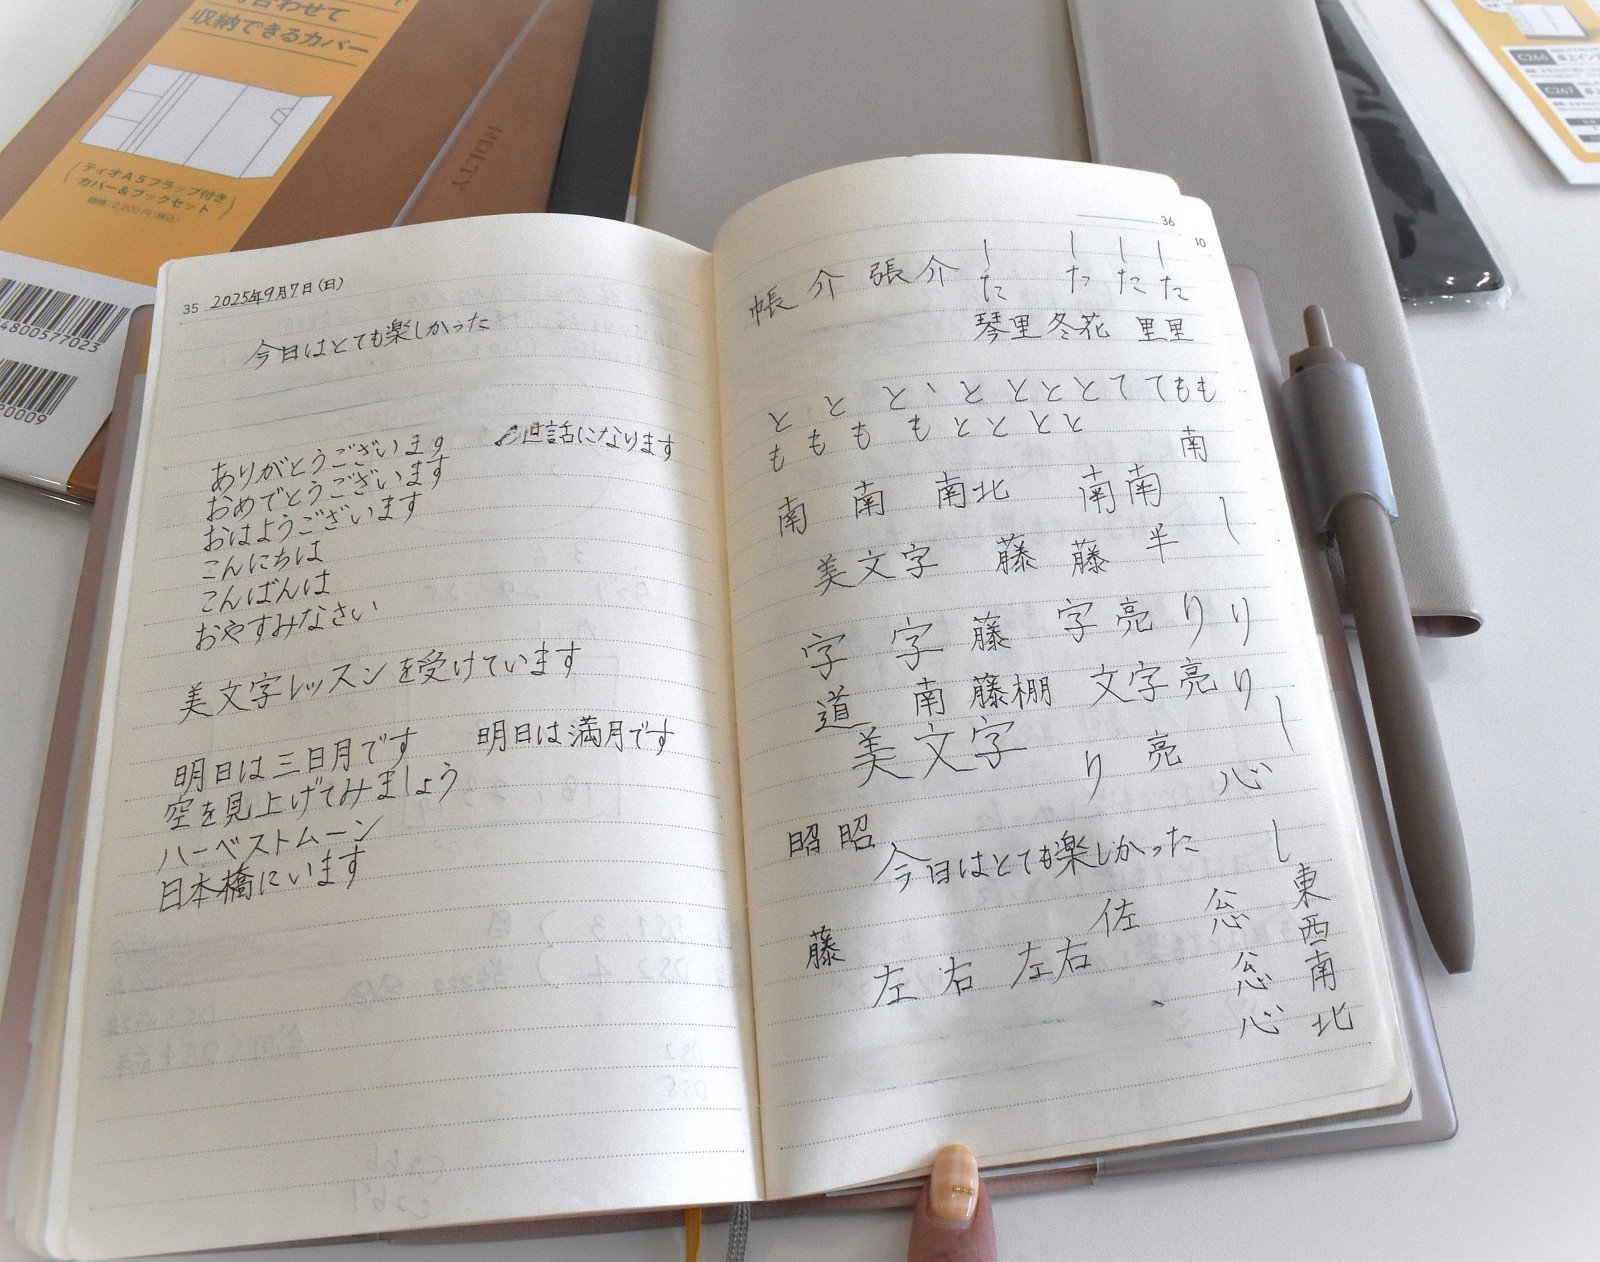 合わせて
収納できるカバー
ディオA5フラップ付き
カバー&ブックセット
価格:2,200円(税込)
NOLTY
4800577023
C266
C267
35 2025年9月7日(日)
今日はとても楽しかった
ありがとうございます 世話になります
おめでとうございます
おはようございます
こんにちは
こんばんは
おやすみなさい
美文字レッスンを受けています
明日は三日月です 明日は満月です
空を見上げてみましょう
ハーベストムーン
日本橋にいます
36
10
し し し し
帳 介 張 介 た た た た
琴里 冬花 里里
と と と、と と と と て て も も
も も も も と と と と
南
南 南 南北 南南 し
美文字 藤 藤 半
字 字 藤 字 亮 り り
道 南 藤棚 文字 亮 り
美文字 り 亮 し
心
昭 昭
今日はとても楽しかった し
藤 左 右 左右 佐
東
西
南
北
心